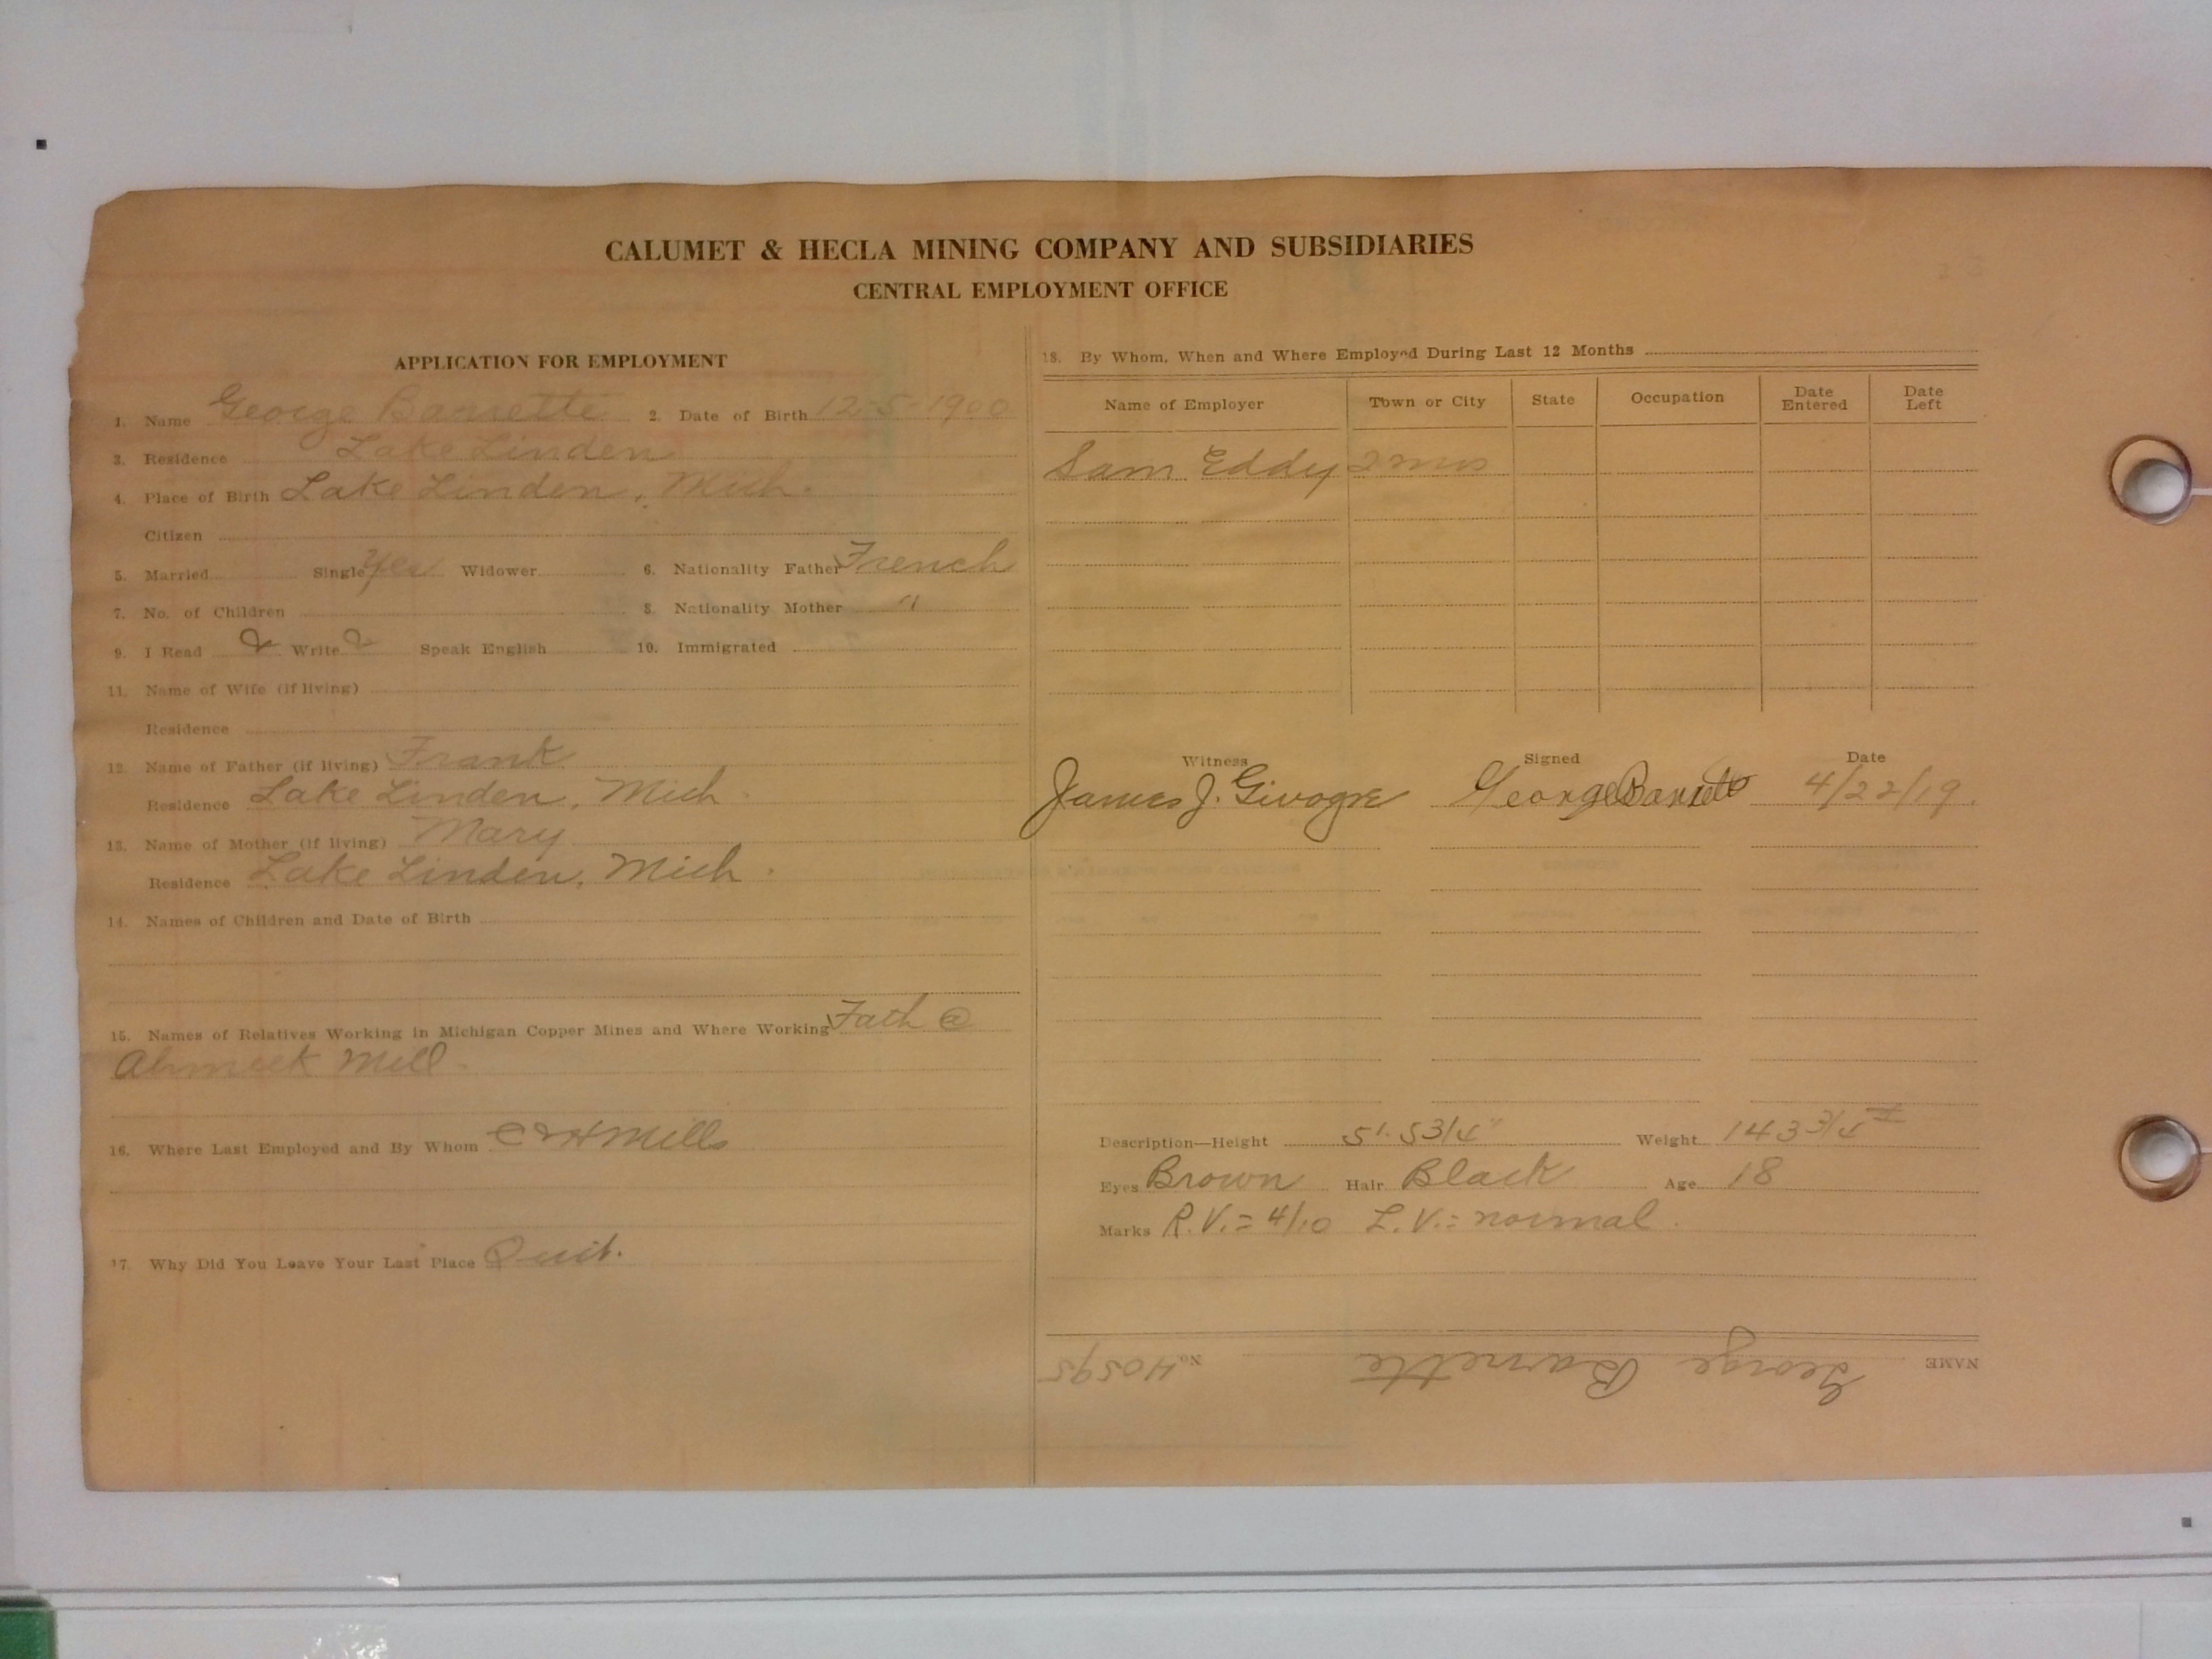 CALUMET & HECLA MINING COMPANY AND SUBSIDIARIES
CENTRAL EMPLOYMENT OFFICE
APPLICATION FOR EMPLOYMENT
1. Name George Barrette 2. Date of Birth 12-5-1900
3. Residence Lake Linden
4. Place of Birth Lake Linden, Mich.
Citizen
5. Married Single Yes Widower 6. Nationality Father French
7. No. of Children 8. Nationality Mother "
9. I Read Write Speak English 10. Immigrated
11. Name of Wife (if living)
Residence
12. Name of Father (if living) Frank
Residence Lake Linden, Mich.
13. Name of Mother (if living) Mary
Residence Lake Linden, Mich.
14. Names of Children and Date of Birth
15. Names of Relatives Working in Michigan Copper Mines and Where Working Fath @
Ahmeek Mill.
16. Where Last Employed and By Whom C&H Mills
17. Why Did You Leave Your Last Place Quit.
18. By Whom, When and Where Employed During Last 12 Months
Name of Employer Town or City State Occupation Date Entered Date Left
Sam Eddy 2 mos
Witness Signed Date
James J. George Barrette 4/22/19.
Description—Height 5'. 5 3/4" Weight 143 3/4 #
Eyes Brown Hair Black Age 18
Marks R.V. = 4/10 L.V. = normal.
NAME George Barrette No. 40595